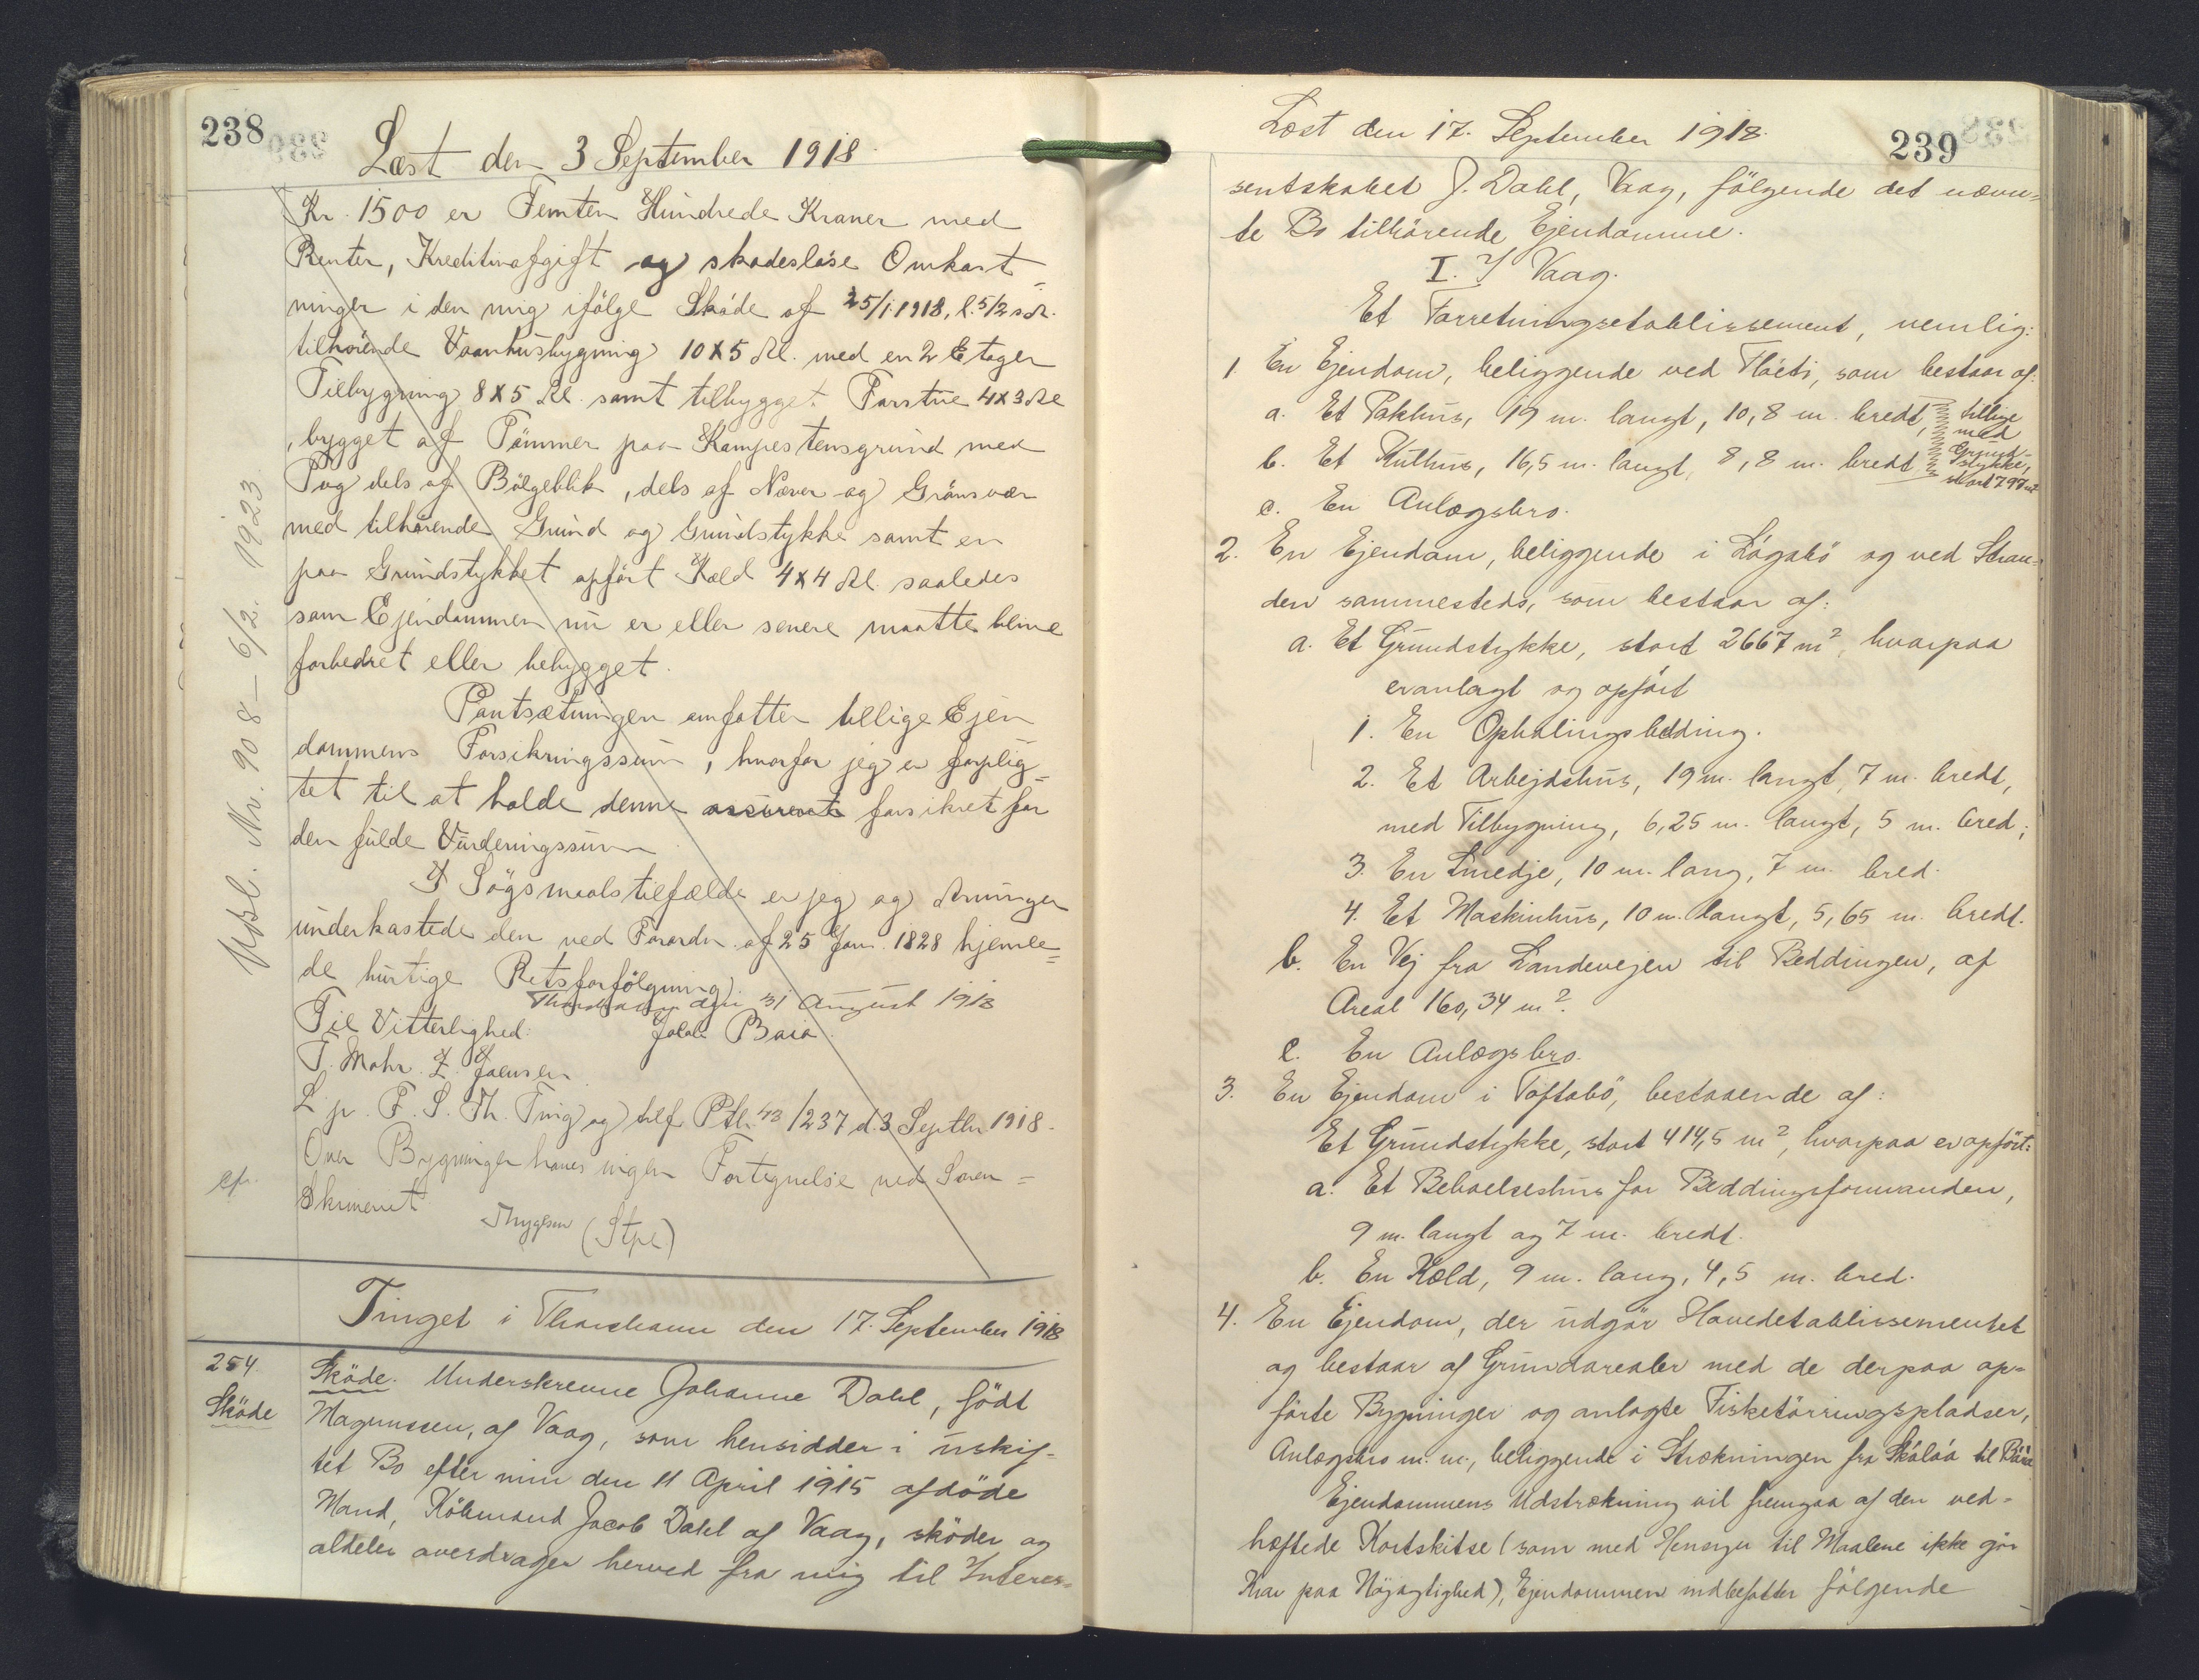 238
Læst den 3 September 1918
Kr. 1500 er Femten Hundrede Kroner med
Renter, Kreditorafgift og skadesløse Omkost=
ninger i den mig ifølge Skøde af 25/1.1918, l. 5/2 s. A.
tilhørende Vaanhusbygning 10 x 5 Al. med en 2 Etages
Tilbygning 8 x 5 Al. samt tilbygget Forstue 4 x 3 Al
, bygget af Tømmer paa Kampestensgrund med
Tag dels af Bølgeblik, dels af Næver og Grønsvær
med tilhørende Grund og Grundstykke samt en
paa Grundstykket opført Kæld 4 x 4 Al. saaledes
som Ejendommen nu er eller senere maatte blive
forbedret eller bebygget.
Pantsætningen omfatter tillige Ejen
dommens Forsikringssum, hvorfor jeg er forplig=
tet til at holde denne assureret forsikret for
den fulde Vurderingssum
I Søgsmaalstilfælde er jeg og Arvinger
underkastede den ved Forordn. af 25 Jan. 1828 hjemle=
de hurtige Retsforfølgning.
Thorshavn den 31 August 1918
Til Vitterlighed: Jakob Baia.
T. Mohr. Z. Joensen
L. p. F. S. Th. Ting og tilf. Ptl. 43/237 d. 3 Septbr 1918.
Over Bygninger haves ingen Fortegnelse ved Soren=
skriveriet
Thygesen (Stpl)
cf.
Upl. Nr. 908 – 6/2. 1923.
Tinget i Thorshavn den 17. September 1918
254.
Skøde
Skøde. Underskrevne Johanne Dahl, født
Magnussen, af Vaag, som hensidder i uskif-
tet Bo efter min den 11 April 1915 afdøde
Mand, Købmand Jacob Dahl af Vaag, skøder og
aldeles overdrager herved fra mig til Interes=
Læst den 17. September 1918.
239
sentskabet J. Dahl, Vaag, følgende det nævn=
te Bo tilhørende Ejendomme.
I. I Vaag.
Et Forretningsetablissement, nemlig:
1. En Ejendom, beliggende ved Fløeti, som bestaar af:
a. Et Pakhus, 19 m. langt, 10,8 m. bredt,
b. Et Kulhus, 16,5 m. langt, 8,8 m. bredt
tillige
med
Grund=
stykke,
stort 797 m²
c. En Anlægsbro.
2. En Ejendom, beliggende i Løgabø og ved Stran=
den sammesteds, som bestaar af:
a. Et Grundstykke, stort 2667 m², hvorpaa
er anlagt og opført
1. En Ophalingsbedding.
2. Et Arbejdshus, 19 m. langt, 7 m. bredt,
med Tilbygning, 6,25 m. langt, 5 m. bred;
3. En Smedje, 10 m. lang, 7 m. bred.
4. Et Maskinhus, 10 m. langt, 5,65 m. bredt.
b. En Vej fra Landevejen til Beddingen, af
Areal 160,34 m².
c. En Anlægsbro.
3. En Ejendom i Toftabø, bestaaende af:
Et Grundstykke, stort 414,5 m², hvorpaa er opført:
a. Et Beboelseshus for Beddingsformanden,
9 m. langt og 7 m. bredt.
b. En Kæld, 9 m. lang, 4,5 m. bred.
4. En Ejendom, der udgør Hovedetablissementet
og bestaar af Grundarealer med de derpaa op=
førte Bygninger og anlagte Fisketørringspladser,
Anlægsbro m. m., beliggende i Strækningen fra Skálaá til
Ejendommens Udstrækning vil fremgaa af den ved=
hæftede Kortskitse (som med Hensyn til Maalene ikke gør
Krav paa Nøjagtighed), Ejendommen indbefatter følgende